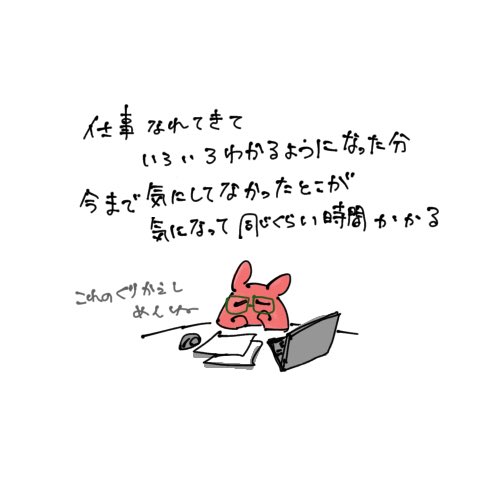 仕事なれてきて
いろいろわかるようになった分
今まで気にしてなかったとこが
気になって同じぐらい時間かかる
これのくりかえし